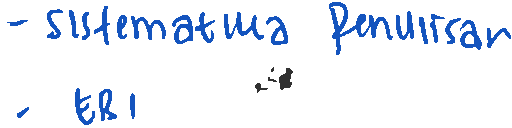 - Sistematika Penulisan
- EBI